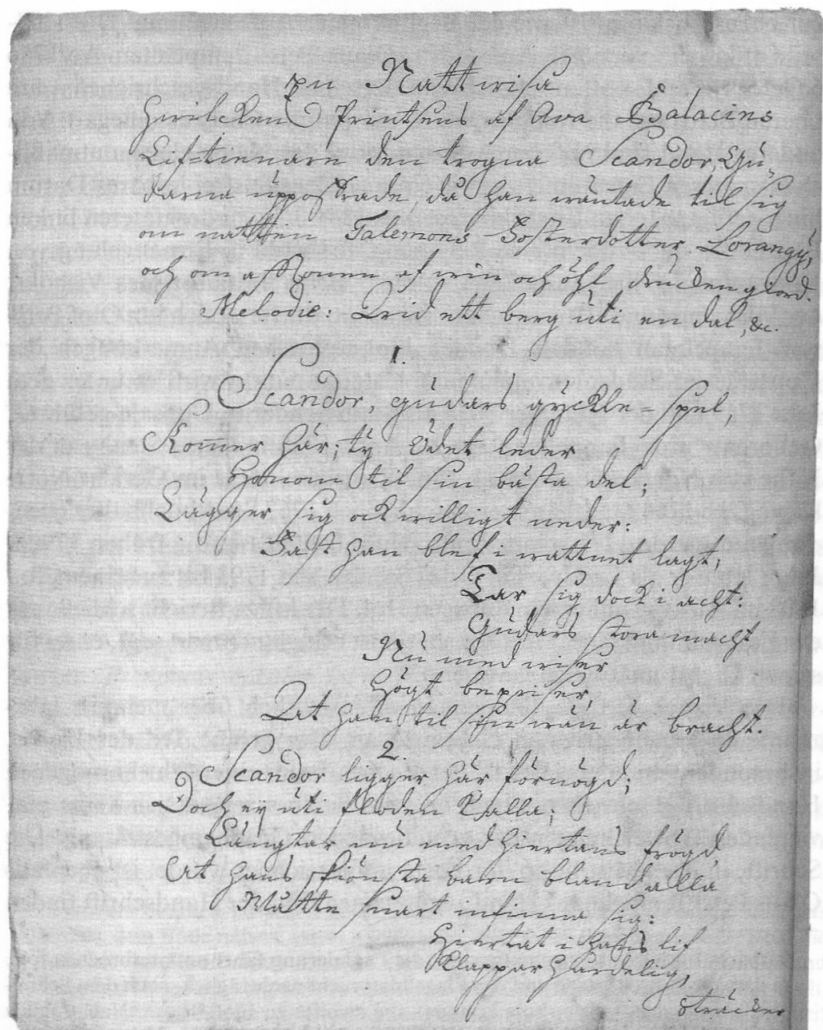 En Nattwisa
Hwilcken Printsens af Ava Balacins
Lif-tienare den trogna Scandor, Gu-
darna uppoffrade, då han wäntade til sig
om natten Talemons Sosterdotter Lorangÿ,
och om afftonen af win och öhl drucken giord.
Melodie: Wid ett berg uti en dal, &c.
1.
Scandor, gudars gÿckle-spel,
Kom̄er här; tÿ Ödet leder
Honom til sin bästa del;
Lägger sig ock williigt neder:
Fast han blef i wattnet lagt,
Tar sig dock i acht:
Gudars stora macht
Nu med wiser
Högt bepriser,
At han til sin wän är bracht.
2.
Scandor ligger här förnögd;
Doch eÿ uti floden kalla;
Längtar nu med hiertans frögd
At hans skiönsta barn bland alla
Måtte snart infinna sig:
Hiertat i hans lif
Klappar hårdelig,
sträcker